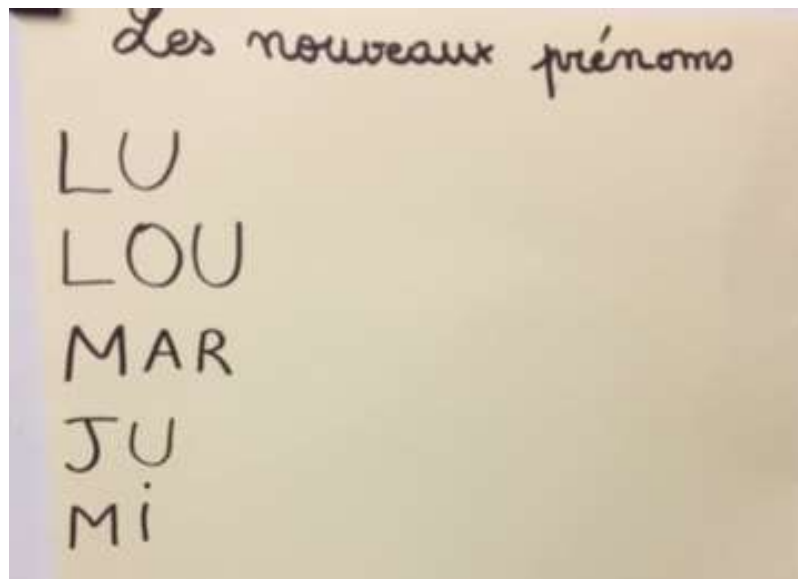 Les nouveaux prénoms
LU
LOU
MAR
JU
Mi